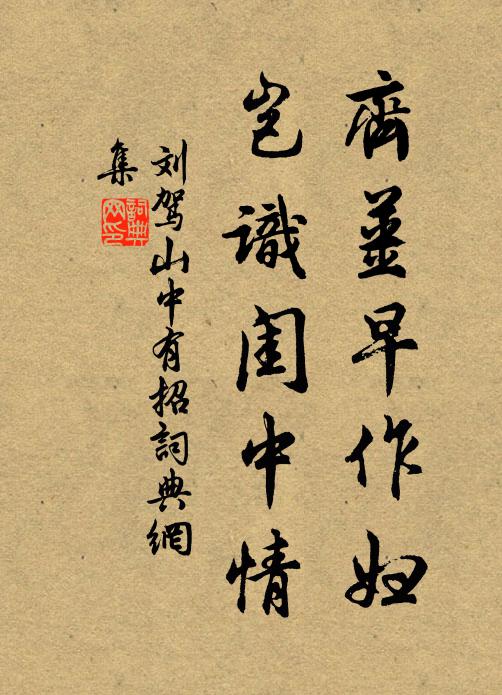 齊姜早作婦
豈識閨中情
刘駕山中有招詞典網
集
詞典网印